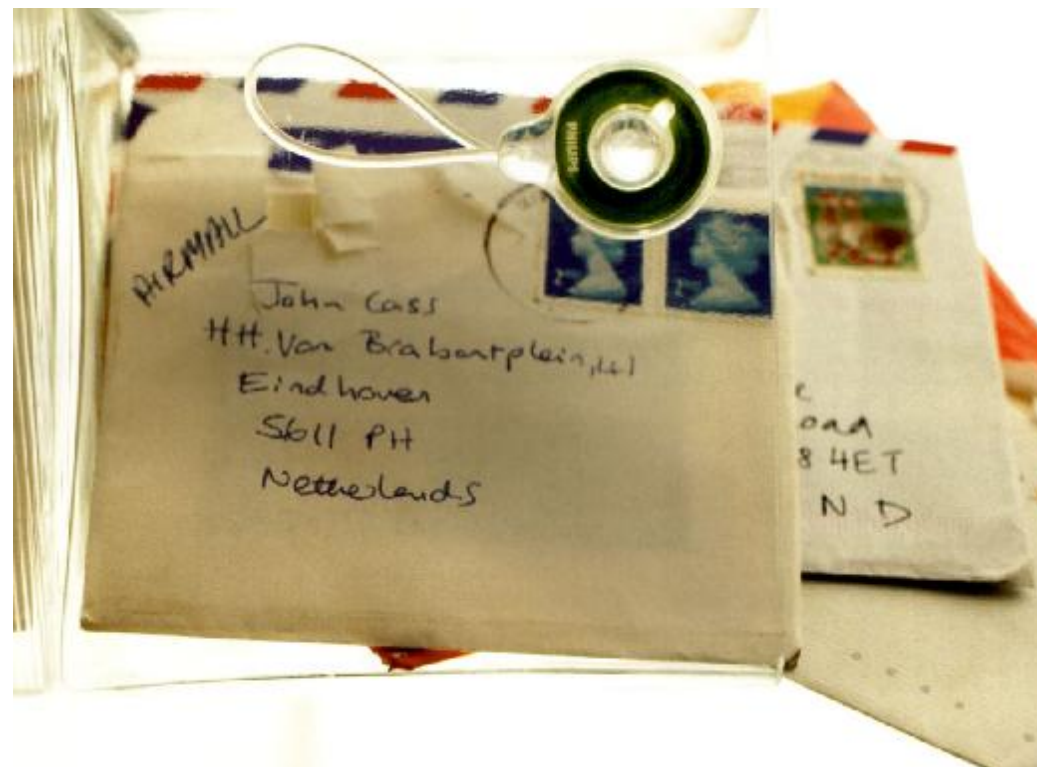 PHILIPS
AIRMAIL
John Cass
HH. Van Brabantplein, 41
Eindhoven
5611 PH
Netherlands
oad
8 4ET
N D